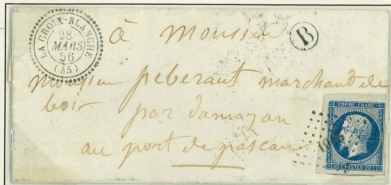 LA CROIX-BLANCHE
28
MARS
56
(45)
à Monsieur
B
Monsieur peberaut marchand de
bois par damazan
au port de pascau
EMPIRE FRANC